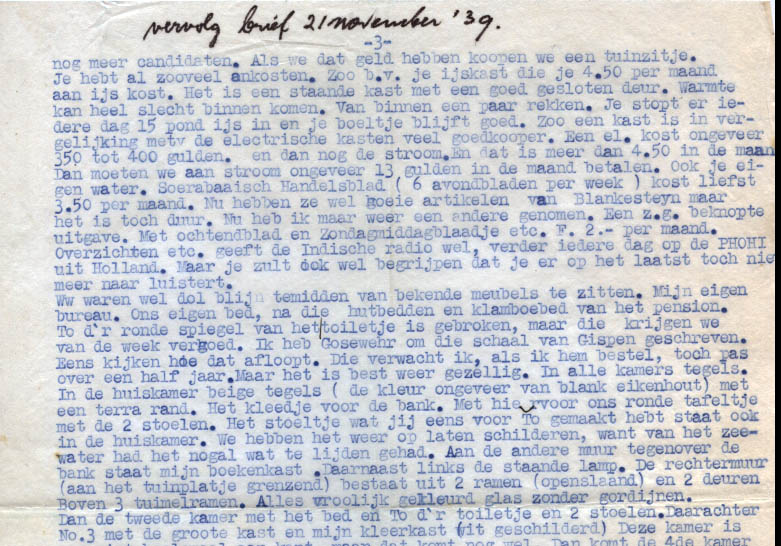 vervolg brief 21 november '39.
-3-
nog meer candidaten. Als we dat geld hebben koopen we een tuinzitje.
Je hebt al zooveel ankosten. Zoo b.v. je ijskast die je 4.50 per maand
aan ijs kost. Het is een staande kast met een goed gesloten deur. Warmte
kan heel slecht binnen komen. Van binnen een paar rekken. Je stopt er ie-
dere dag 15 pond ijs in en je boeltje blijft goed. Zoo een kast is in ver-
gelijking metv de electrische kasten veel goedkooper. Een el. kost ongeveer
350 tot 400 gulden. en dan nog de stroom.En dat is meer dan 4.50 in de maan
Dan moeten we aan stroom ongeveer 13 gulden in de maand betalen. Ook je ei-
gen water. Soerabaaisch Handelsblad ( 6 avondbladen per week ) kost liefst
3.50 per maand. Nu hebben ze wel goeie artikelen van Blankesteyn maar
het is toch duur. Nu heb ik maar weer een andere genomen. Een z.g. beknopte
uitgave. Met ochtendblad en Zondagmiddagblaadje etc. F. 2.- per maand.
Overzichten etc. geeft de Indische radio wel, verder iedere dag op de PHOHI
uit Holland. Maar je zult ook wel begrijpen dat je er op het laatst toch nie
meer naar luistert.
Ww waren wel dol blijn temidden van bekende meubels te zitten. Mijn eigen
bureau. Ons eigen bed, na die hutbedden en klamboebed van het pension.
To d'r ronde spiegel van het toiletje is gebroken, maar die krijgen we
van de week vergoed. Ik heb Gosewehr om die schaal van Gispen geschreven.
Eens kijken hoe dat afloopt. Die verwacht ik, als ik hem bestel, toch pas
over een half jaar.Maar het is best weer gezellig. In alle kamers tegels.
In de huiskamer beige tegels ( de kleur ongeveer van blank eikenhout) met
een terra rand. Het kleedje voor de bank. Met hiervoor ons ronde tafeltje
met de 2 stoelen. Het stoeltje wat jij eens voor To gemaakt hebt staat ook
in de huiskamer. We hebben het weer op laten schilderen, want van het zee-
water had het nogal wat te lijden gehad. Aan de andere muur tegenover de
bank staat mijn boekenkast .Daarnaast links de staande lamp. De rechtermuur
(aan het tuinplatje grenzend) bestaat uit 2 ramen (openslaand) en 2 deuren
Boven 3 tuimelramen. Alles vroolijk gekleurd glas zonder gordijnen.
Dan de tweede kamer met het bed en To d'r toiletje en 2 stoelen.Daarachter
No.3 met de groote kast en mijn kleerkast (wit geschilderd) Deze kamer is
maar dat komt nog wel. Dan komt de 4de kamer